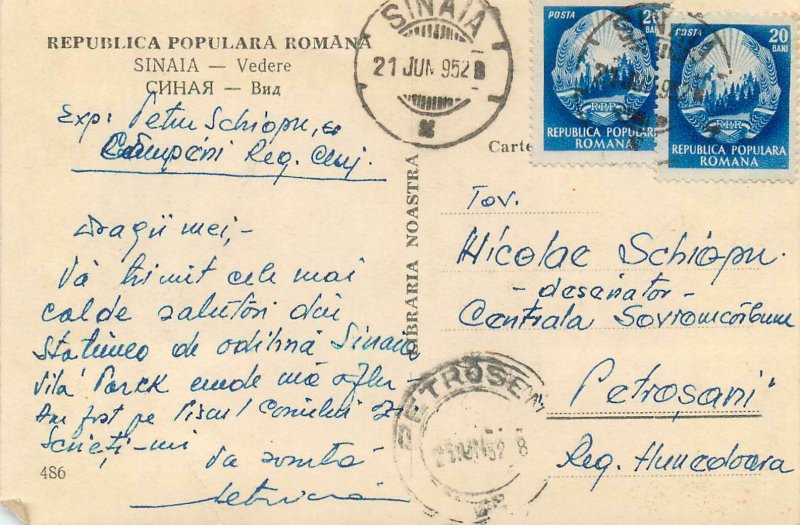 REPUBLICA POPULARĂ ROMÂNĂ
SINAIA — Vedere
СИНАЯ — Вид
Exp: Petru Schiopu,
Câmpeni Reg. Cluj.
Dragii mei,-
Vă trimit cele mai
calde salutări din
Stațiunea de odihnă Sinaia
Vila Parck unde mă aflu-
Am fost pe Piscul Cânelui
Scrieți-mi
Va sărută
486
LIBRĂRIA NOASTRĂ
SINAIA
21 JUN 952
POSTA
20
BANI
RPR
REPUBLICA POPULARA
ROMANA
POSTA
20
BANI
RPR
REPUBLICA POPULARA
ROMANA
Carte
Tov.
Nicolae Schiopu.
- desenator -
Centrala Sovromcărbune
Petroșani
Reg. Hunedoara
PETROSENI